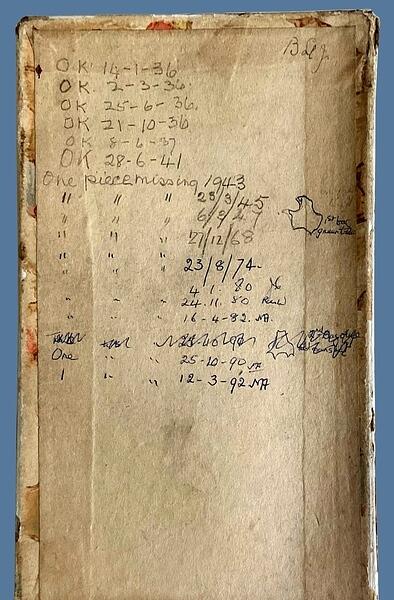 OK 14-1-36
OK 2-3-36.
OK 25-6-36.
OK 21-10-36
OK 8-6-37
OK 28-6-41
One piece missing 1943
" " " 23/3/45
" " " 6/9/47
1st box
" " " 27/12/68
" " " 23/8/74-
" " " 4.1.80
" " " 24.11.80
" " " 16-4-82. NA.
One " " 25-10-90 NA
1 " " 12-3-92 NA